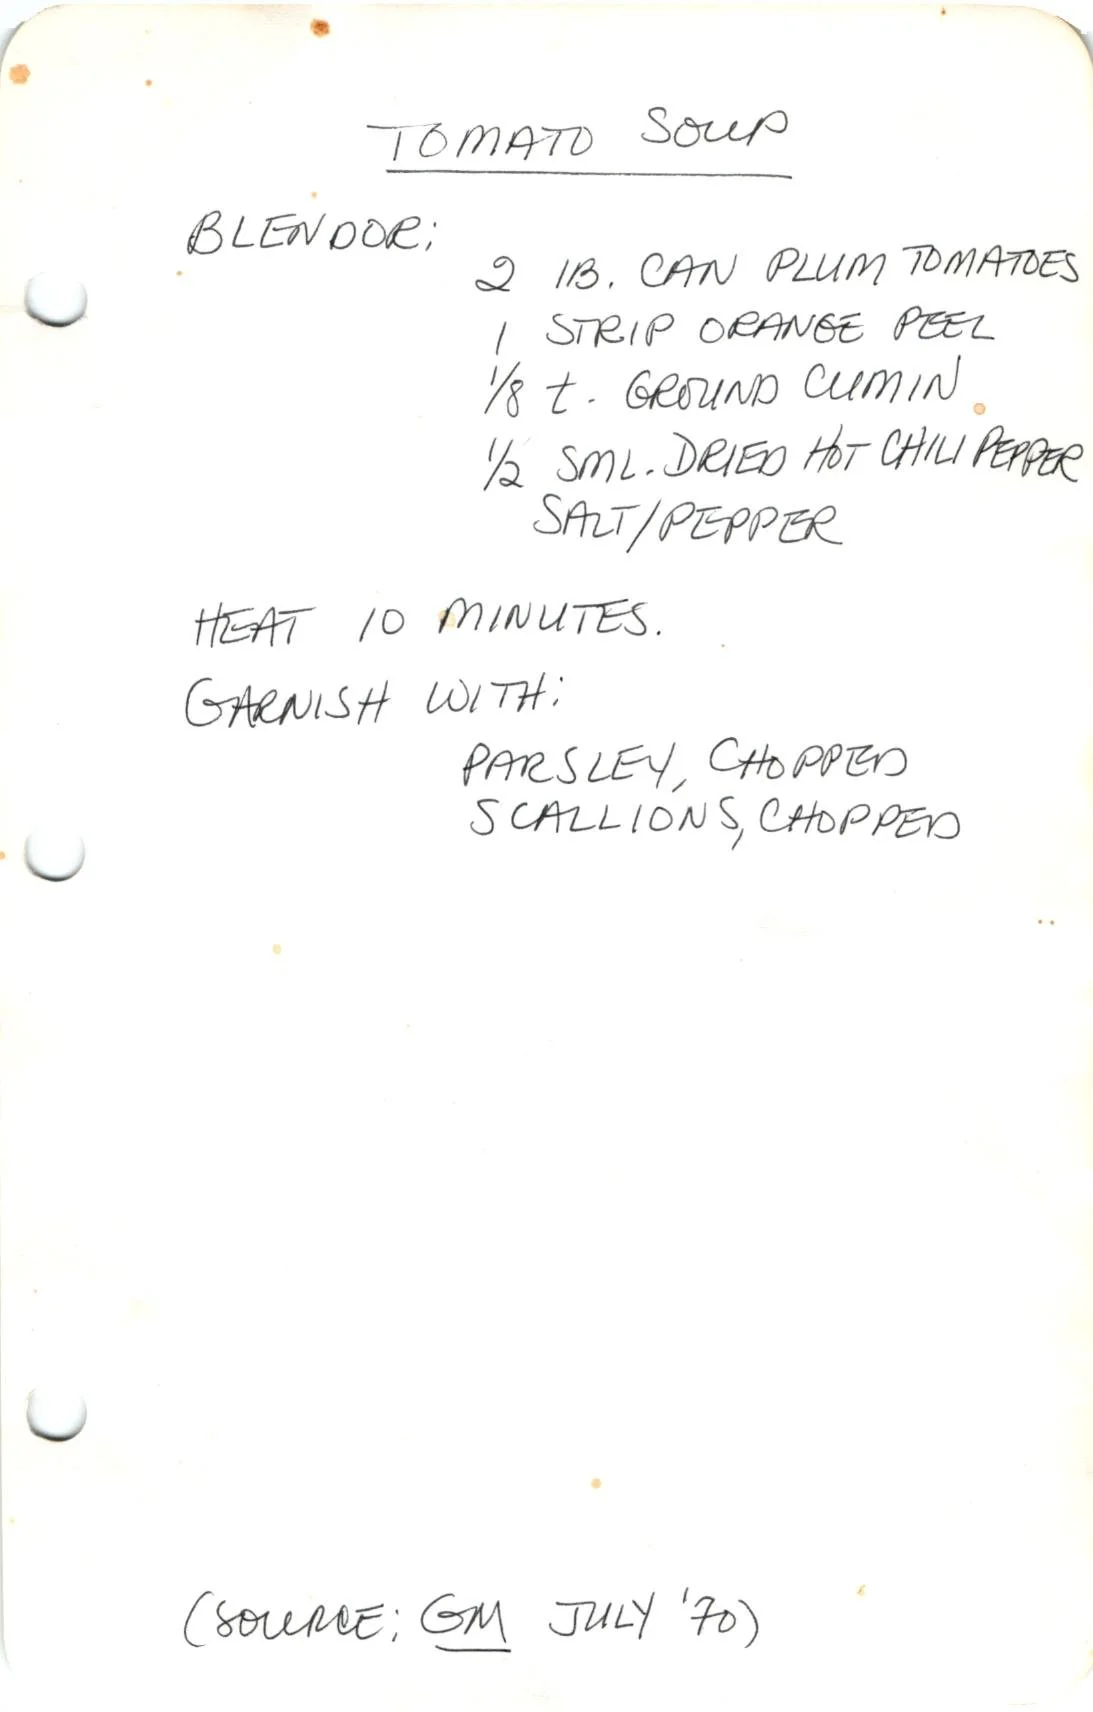 TOMATO SOUP
BLENDOR:
2 lB. CAN PLUM TOMATOES
1 STRIP ORANGE PEEL
1/8 t. GROUND CUMIN
1/2 SML. DRIED HOT CHILI PEPPER
SALT/PEPPER
HEAT 10 MINUTES.
GARNISH WITH:
PARSLEY, CHOPPED
SCALLIONS, CHOPPED
(SOURCE: GM JULY '70)